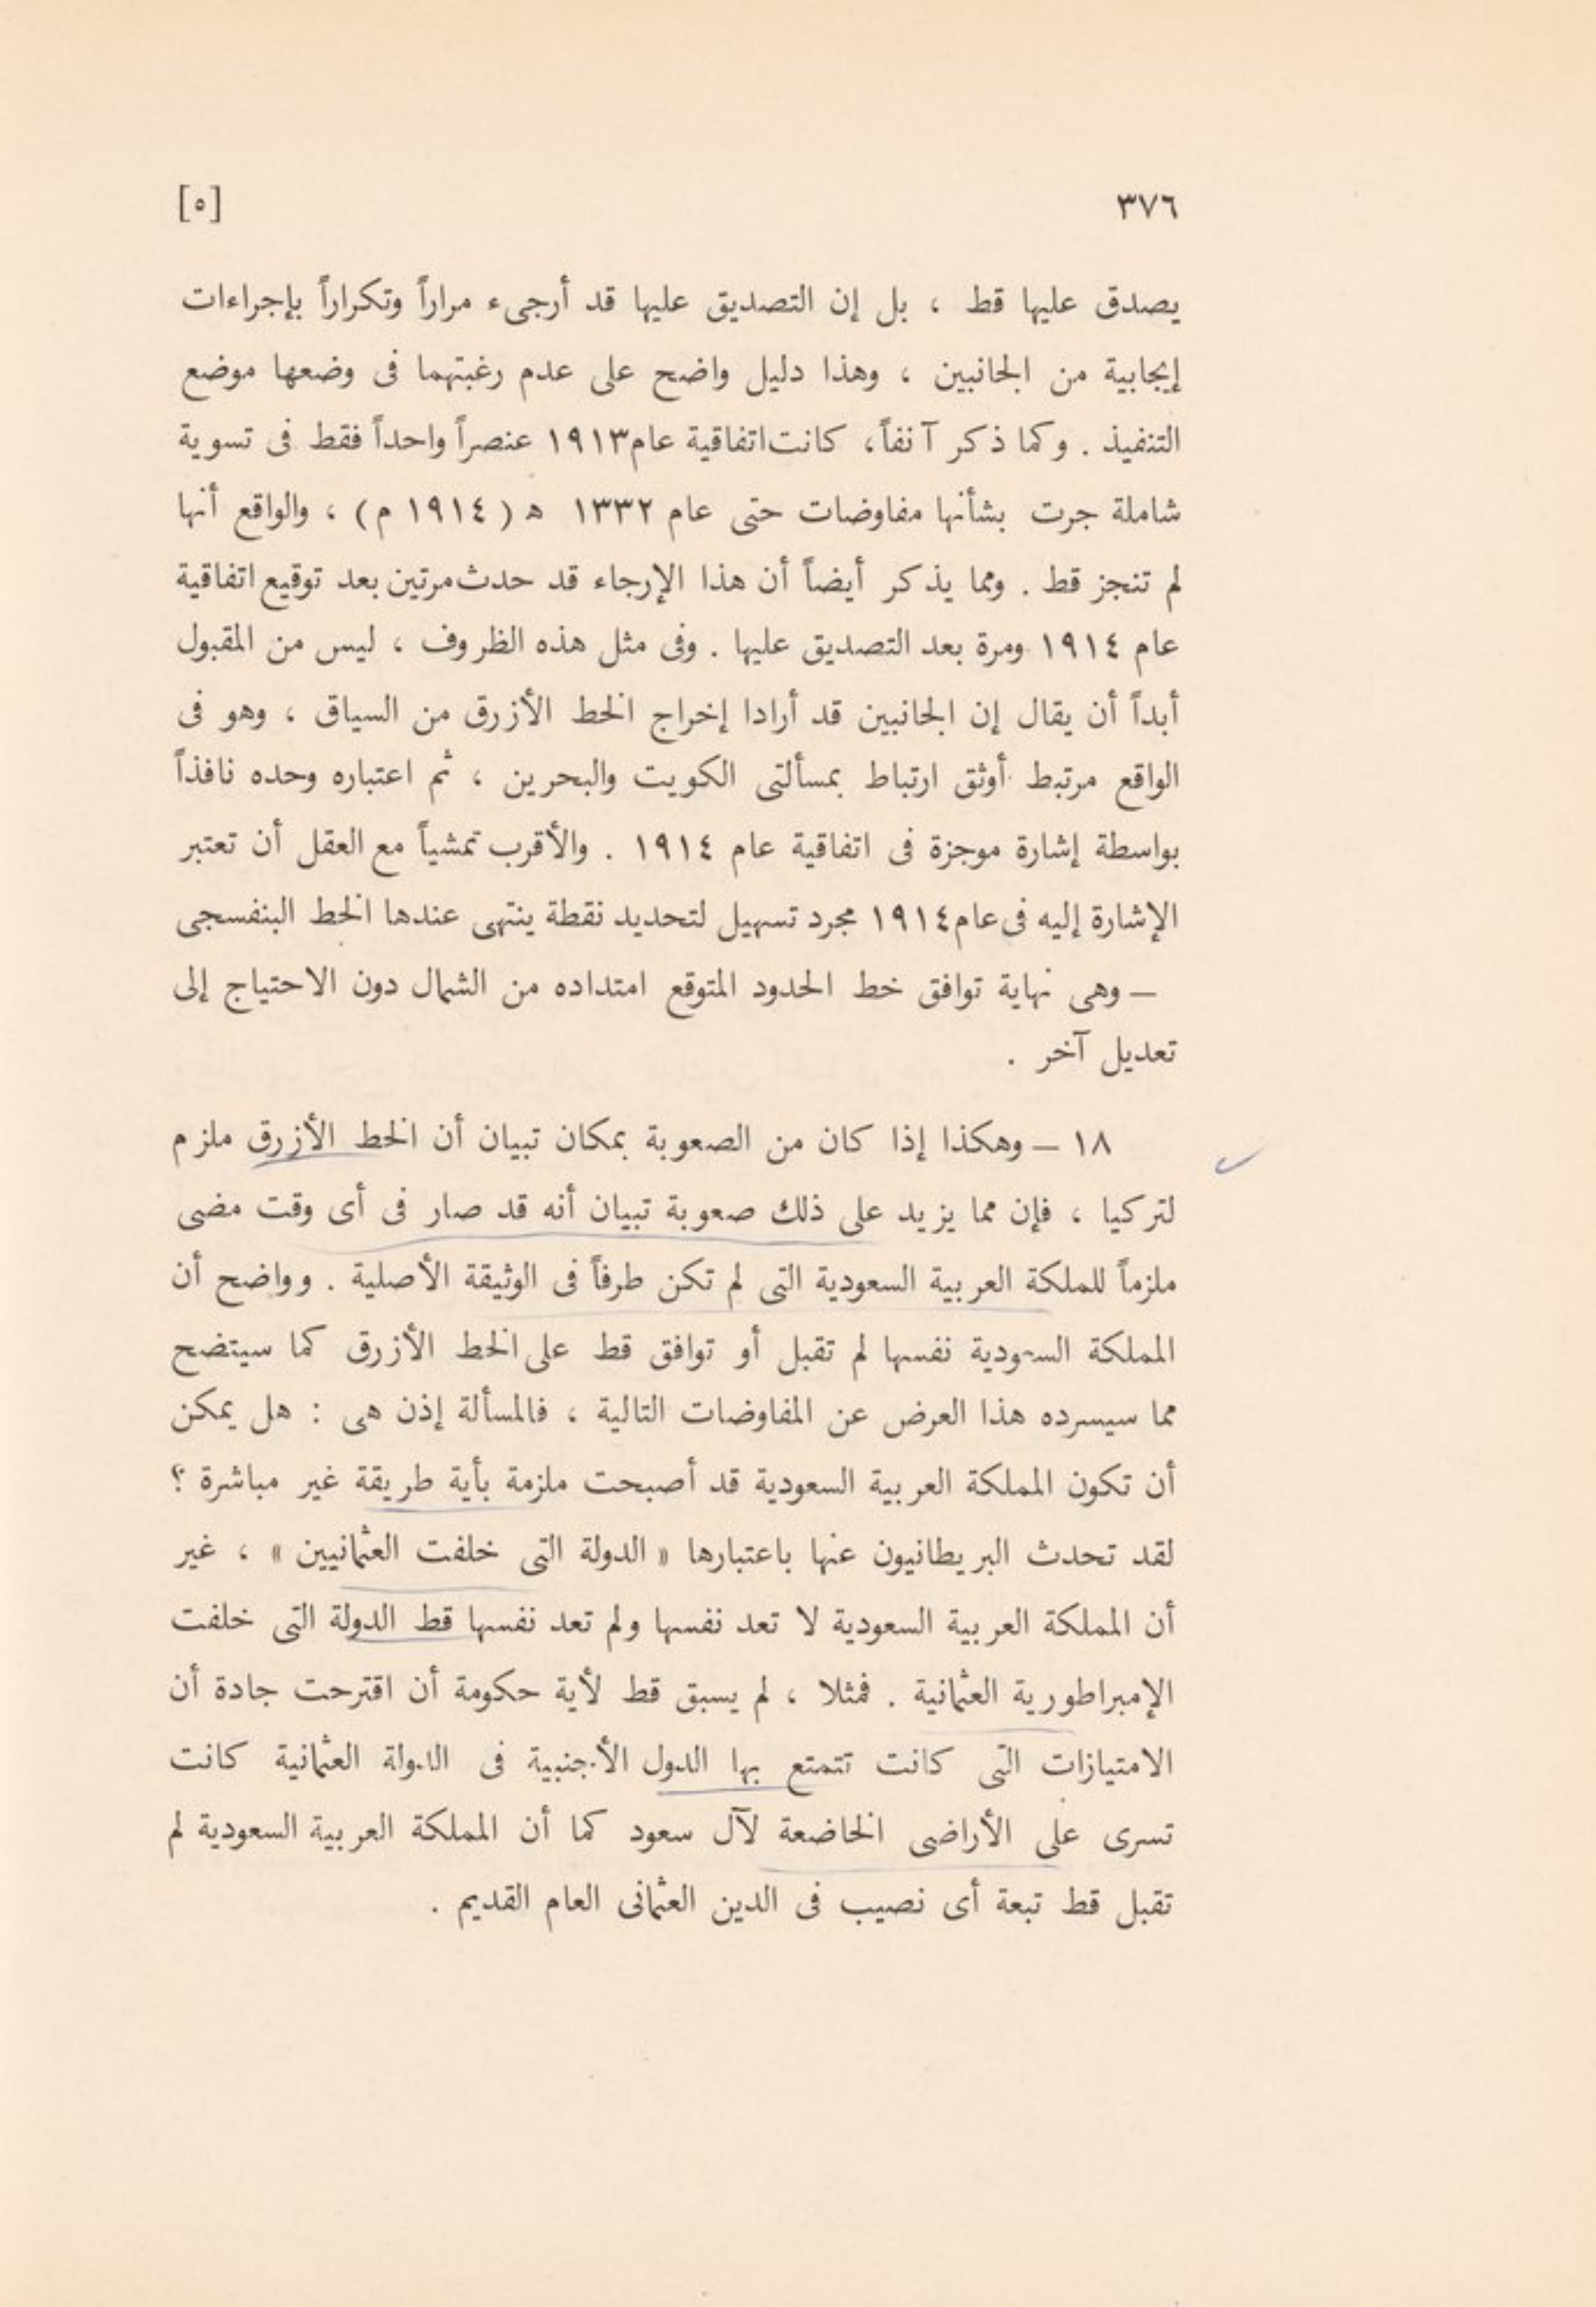 ٣٧٦ [٥]
يصدق عليها قط ، بل إن التصديق عليها قد أرجىء مراراً وتكراراً بإجراءات
إيجابية من الجانبين ، وهذا دليل واضح على عدم رغبتهما فى وضعها موضع
التنفيذ . وكما ذكر آنفاً ، كانت اتفاقية عام ١٩١٣ عنصراً واحداً فقط فى تسوية
شاملة جرت بشأنها مفاوضات حتى عام ١٣٣٢ ه ( ١٩١٤ م ) ، والواقع أنها
لم تنجز قط . ومما يذكر أيضاً أن هذا الإرجاء قد حدث مرتين بعد توقيع اتفاقية
عام ١٩١٤ ومرة بعد التصديق عليها . وفى مثل هذه الظروف ، ليس من المقبول
أبداً أن يقال إن الجانبين قد أرادا إخراج الخط الأزرق من السياق ، وهو فى
الواقع مرتبط أوثق ارتباط بمسألتى الكويت والبحرين ، ثم اعتباره وحده نافذاً
بواسطة إشارة موجزة فى اتفاقية عام ١٩١٤ . والأقرب تمشياً مع العقل أن تعتبر
الإشارة إليه فى عام ١٩١٤ مجرد تسهيل لتحديد نقطة ينتهى عندها الخط البنفسجى
— وهى نهاية توافق خط الحدود المتوقع امتداده من الشمال دون الاحتياج إلى
تعديل آخر .
١٨ — وهكذا إذا كان من الصعوبة بمكان تبيان أن الخط الأزرق ملزم
لتركيا ، فإن مما يزيد على ذلك صعوبة تبيان أنه قد صار فى أى وقت مضى
ملزماً للملكة العربية السعودية التى لم تكن طرفاً فى الوثيقة الأصلية . وواضح أن
المملكة السعودية نفسها لم تقبل أو توافق قط على الخط الأزرق كما سيتضح
مما سيسرده هذا العرض عن المفاوضات التالية ، فالمسألة إذن هى : هل يمكن
أن تكون المملكة العربية السعودية قد أصبحت ملزمة بأية طريقة غير مباشرة ؟
لقد تحدث البريطانيون عنها باعتبارها « الدولة التى خلفت العثمانيين » ، غير
أن المملكة العربية السعودية لا تعد نفسها ولم تعد نفسها قط الدولة التى خلفت
الإمبراطورية العثمانية . فمثلا ، لم يسبق قط لأية حكومة أن اقترحت جادة أن
الامتيازات التى كانت تتمتع بها الدول الأجنبية فى الدولة العثمانية كانت
تسرى على الأراضى الخاضعة لآل سعود كما أن المملكة العربية السعودية لم
تقبل قط تبعة أى نصيب فى الدين العثمانى العام القديم .